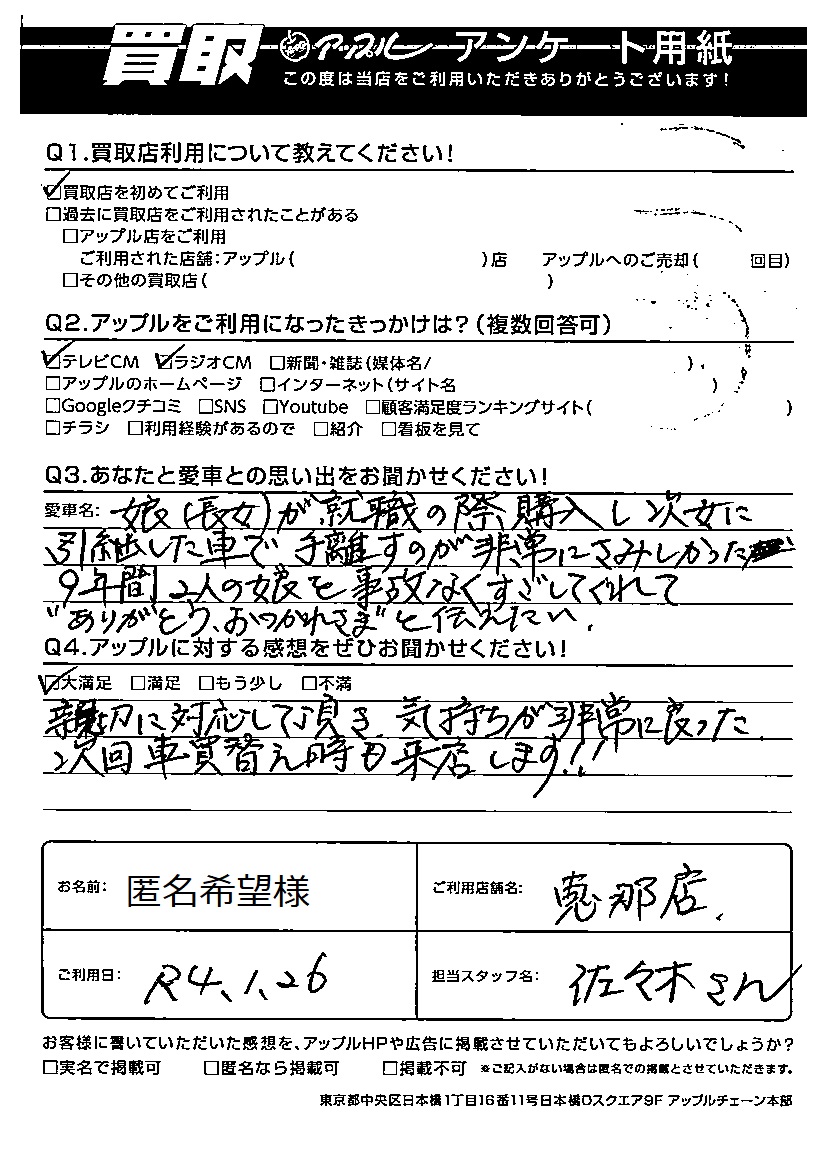 買取 アップル アンケート用紙
この度は当店をご利用いただきありがとうございます!
Q1.買取店利用について教えてください!
☑買取店を初めてご利用
□過去に買取店をご利用されたことがある
□アップル店をご利用
ご利用された店舗:アップル( )店 アップルへのご売却( 回目)
□その他の買取店( )
Q2.アップルをご利用になったきっかけは?(複数回答可)
☑テレビCM ☑ラジオCM □新聞・雑誌(媒体名/ )
□アップルのホームページ □インターネット(サイト名 )
□Googleクチコミ □SNS □Youtube □顧客満足度ランキングサイト( )
□チラシ □利用経験があるので □紹介 □看板を見て
Q3.あなたと愛車との思い出をお聞かせください!
愛車名: 娘(長女)が就職の際購入し次女に
引継した車で手離すのが非常にさみしかった
9年間2人の娘を事故なくすごしてくれて
"ありがとう、おつかれさま"と伝えたい.
Q4.アップルに対する感想をぜひお聞かせください!
☑大満足 □満足 □もう少し □不満
親切に対応して頂き、気持ちが非常に良った.
次回車買替え時も来店します!!
お名前: 匿名希望様
ご利用店舗名: 恵那店.
ご利用日: R4.1.26
担当スタッフ名: 佐々木さん
お客様に書いていただいた感想を、アップルHPや広告に掲載させていただいてもよろしいでしょうか?
□実名で掲載可 □匿名なら掲載可 □掲載不可 ※ご記入がない場合は匿名での掲載とさせていただきます。
東京都中央区日本橋1丁目16番11号日本橋Dスクエア9F アップルチェーン本部